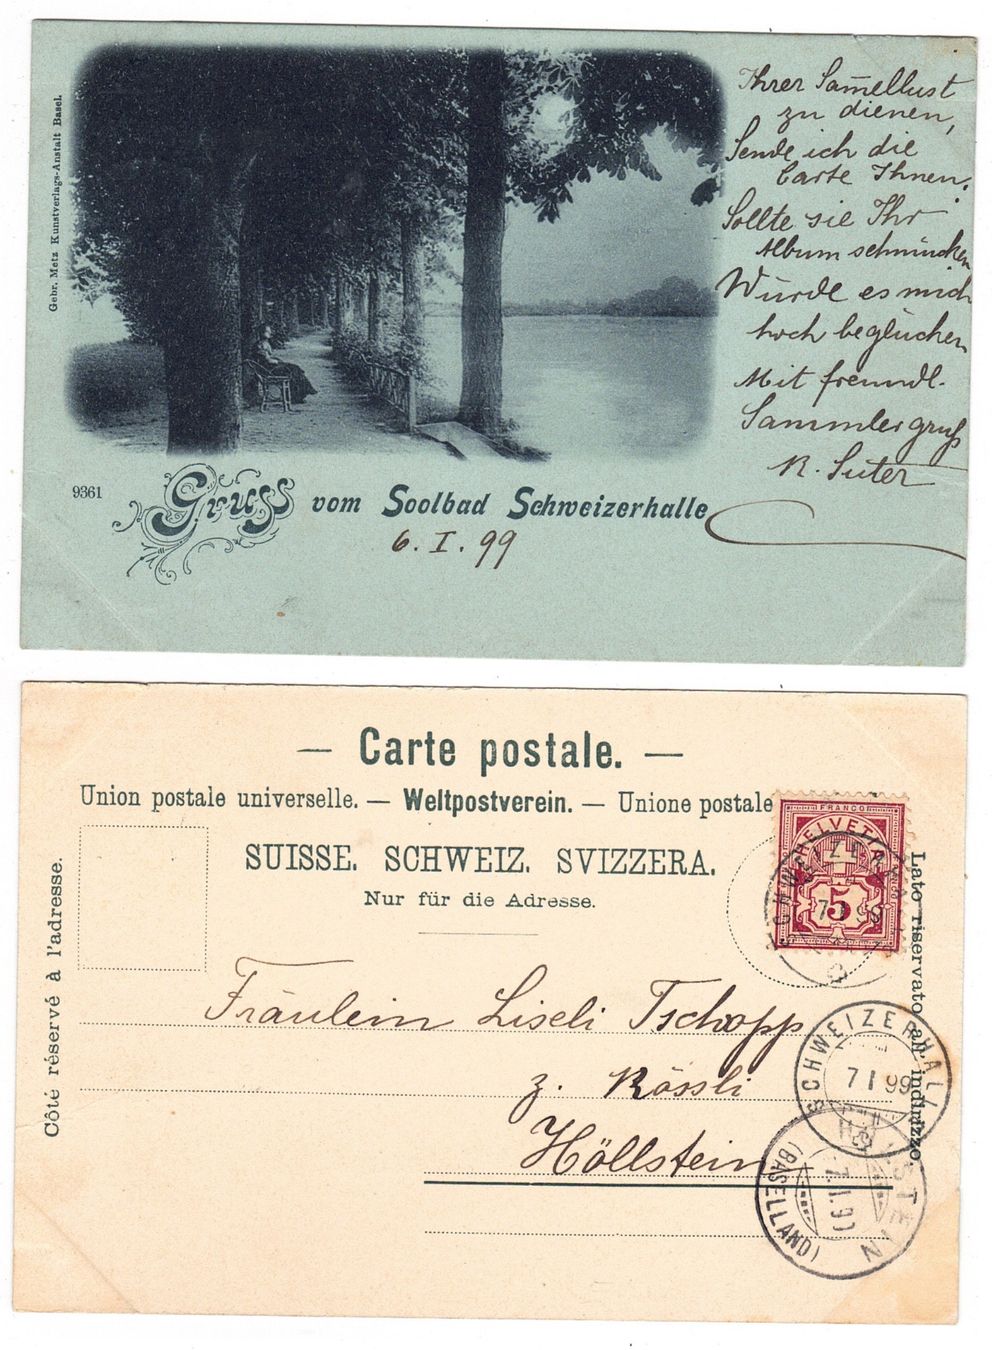 Gebr. Metz Kunstverlags-Anstalt Basel.
Ihrer Sam̅ellust
zu dienen,
Sende ich die
Carte Ihnen.
Sollte sie Ihr
Album schmücken
Würde es mich
hoch beglücken
Mit freundl.
Sammlergruß
R. Suter
9361
Gruss vom Soolbad Schweizerhalle
6. I. 99
— Carte postale. —
Union postale universelle. — Weltpostverein. — Unione postale
SUISSE. SCHWEIZ. SVIZZERA.
Nur für die Adresse.
Côté réservé à l'adresse.
Lato riservato all' indirizzo.
FRANCO
HELVETIA
5
SCHWEIZERHALL
7 I 99
Fräulein Liseli Tschopp
z. Rössli
Höllstein
SCHWEIZERHALL
7 I 99
HÖLSTEIN
7. I. 99
(BASELLAND)